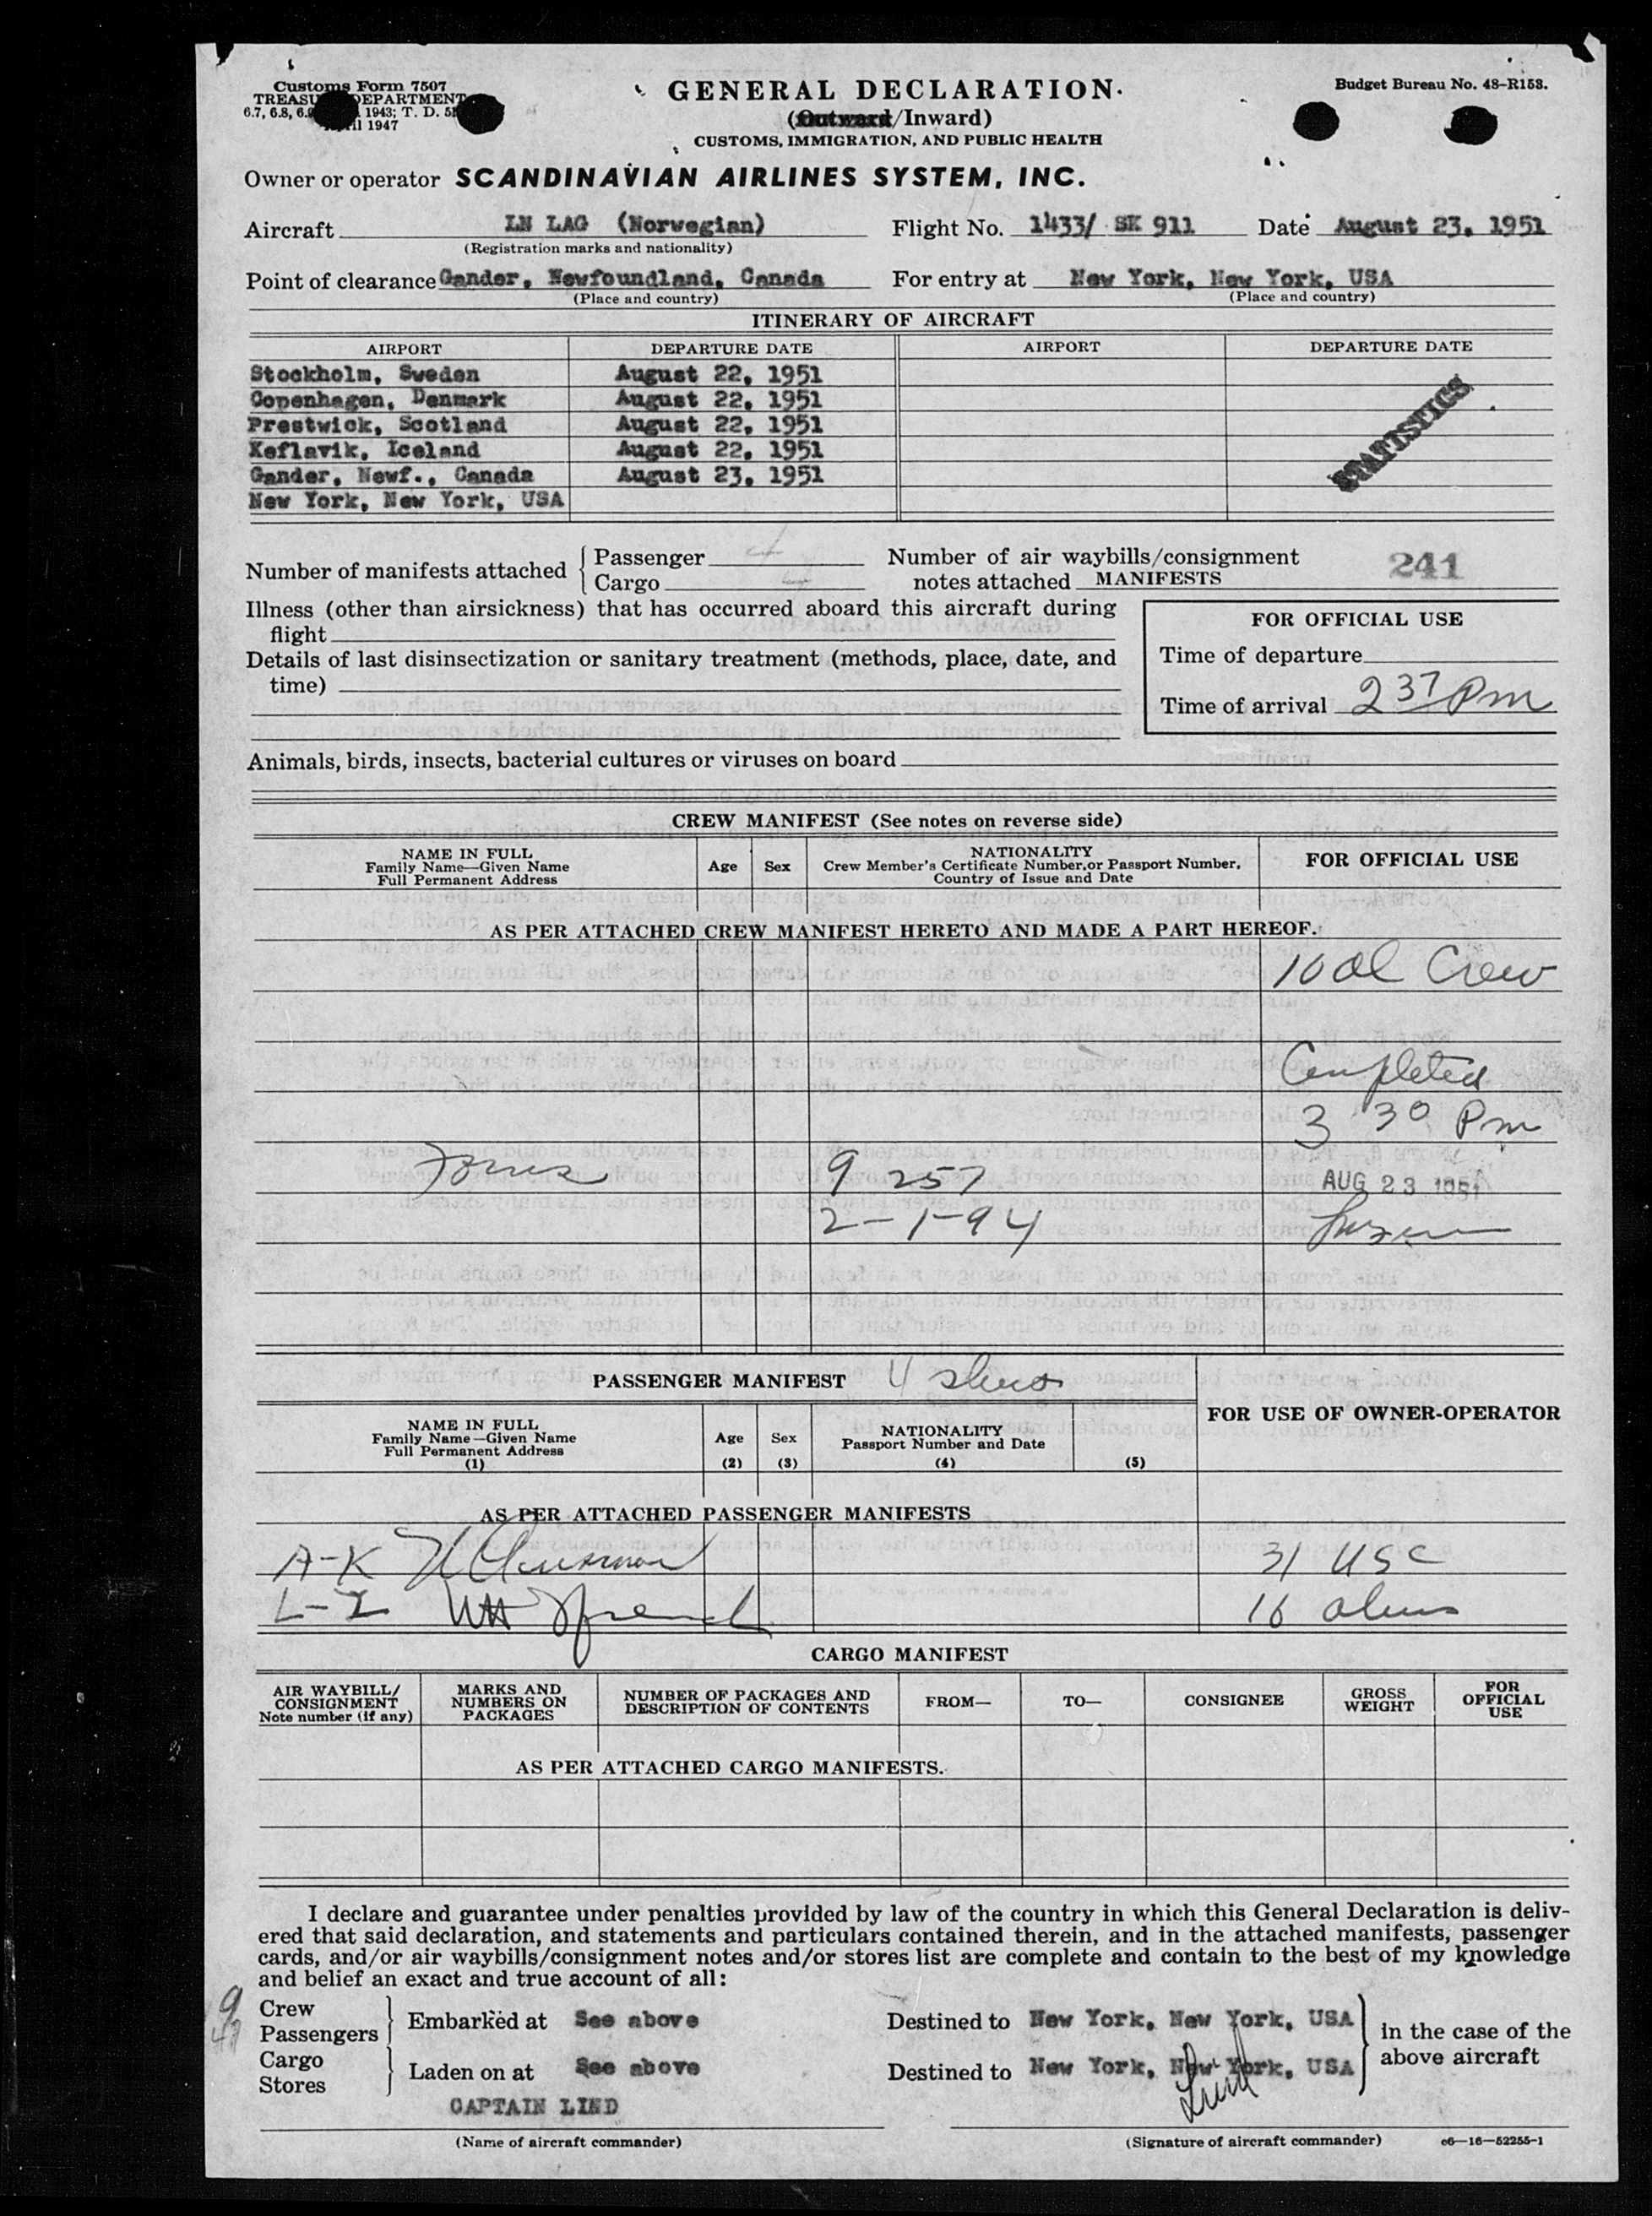 Customs Form 7507
GENERAL DECLARATION.
Budget Bureau No. 48-R153.
TREASU DEPARTMENT
6.7, 6.8, 6.9 1943; T. D. 5
il 1947
(Outward/Inward)
CUSTOMS, IMMIGRATION, AND PUBLIC HEALTH
Owner or operator SCANDINAVIAN AIRLINES SYSTEM, INC.
Aircraft LN LAG (Norwegian) Flight No. 1433/ SK 911 Date August 23, 1951
(Registration marks and nationality)
Point of clearance Gander, Newfoundland, Canada For entry at New York, New York, USA
(Place and country) (Place and country)
ITINERARY OF AIRCRAFT
AIRPORT DEPARTURE DATE AIRPORT DEPARTURE DATE
Stockholm, Sweden August 22, 1951
Copenhagen, Denmark August 22, 1951
Prestwick, Scotland August 22, 1951
Keflavik, Iceland August 22, 1951
Gander, Newf., Canada August 23, 1951
New York, New York, USA
STATISTICS
Number of manifests attached { Passenger 4 Number of air waybills/consignment 241
Cargo 4 notes attached MANIFESTS
Illness (other than airsickness) that has occurred aboard this aircraft during
flight
Details of last disinsectization or sanitary treatment (methods, place, date, and
time)
FOR OFFICIAL USE
Time of departure
Time of arrival 2 37 Pm
Animals, birds, insects, bacterial cultures or viruses on board
CREW MANIFEST (See notes on reverse side)
NAME IN FULL
Family Name—Given Name
Full Permanent Address
Age Sex
NATIONALITY
Crew Member's Certificate Number, or Passport Number,
Country of Issue and Date
FOR OFFICIAL USE
AS PER ATTACHED CREW MANIFEST HERETO AND MADE A PART HEREOF.
10 al Crew
Completed
3 30 Pm
9 257
AUG 23 1951
2-1-94
PASSENGER MANIFEST 4
NAME IN FULL
Family Name—Given Name
Full Permanent Address
(1)
Age
(2)
Sex
(3)
NATIONALITY
Passport Number and Date
(4)
(5)
FOR USE OF OWNER-OPERATOR
AS PER ATTACHED PASSENGER MANIFESTS
A-K
31 USC
L-Z
16 aliens
CARGO MANIFEST
AIR WAYBILL/
CONSIGNMENT
Note number (if any)
MARKS AND
NUMBERS ON
PACKAGES
NUMBER OF PACKAGES AND
DESCRIPTION OF CONTENTS
FROM—
TO—
CONSIGNEE
GROSS
WEIGHT
FOR
OFFICIAL
USE
AS PER ATTACHED CARGO MANIFESTS.
I declare and guarantee under penalties provided by law of the country in which this General Declaration is deliv-
ered that said declaration, and statements and particulars contained therein, and in the attached manifests, passenger
cards, and/or air waybills/consignment notes and/or stores list are complete and contain to the best of my knowledge
and belief an exact and true account of all:
9 Crew
47 Passengers
Embarked at See above Destined to New York, New York, USA
in the case of the
above aircraft
Cargo
Stores
Laden on at See above Destined to New York, New York, USA
CAPTAIN LIND
Lind
(Name of aircraft commander) (Signature of aircraft commander) c6—16—52255-1